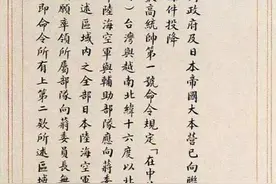 政府及日本帝國大本營已向聯
件投降
高統帥第一號命令規定「在中
)台灣與越南北緯十六度以北
陸海空軍與輔助部隊應向蔣
願率領所屬部隊向蔣委員長無
述區域內之全部日本陸海空軍
即命令所有上第二款所述區域